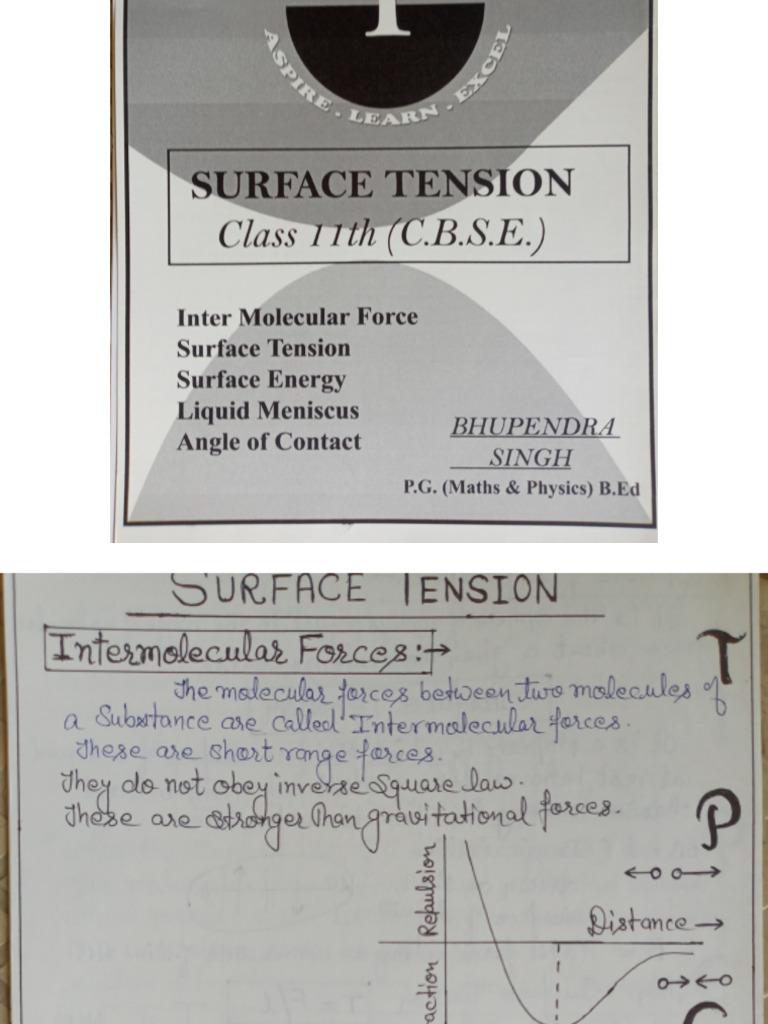 ASPIRE - LEARN - EXCEL
SURFACE TENSION
Class 11th (C.B.S.E.)
Inter Molecular Force
Surface Tension
Surface Energy
Liquid Meniscus
Angle of Contact
BHUPENDRA
SINGH
P.G. (Maths & Physics) B.Ed
SURFACE TENSION
Intermolecular Forces:→
T
The molecular forces between two molecules of
a Substance are called Intermolecular forces.
These are short range forces.
They do not obey inverse Square law.
These are stronger than gravitational forces.
P
Repulsion
Distance →